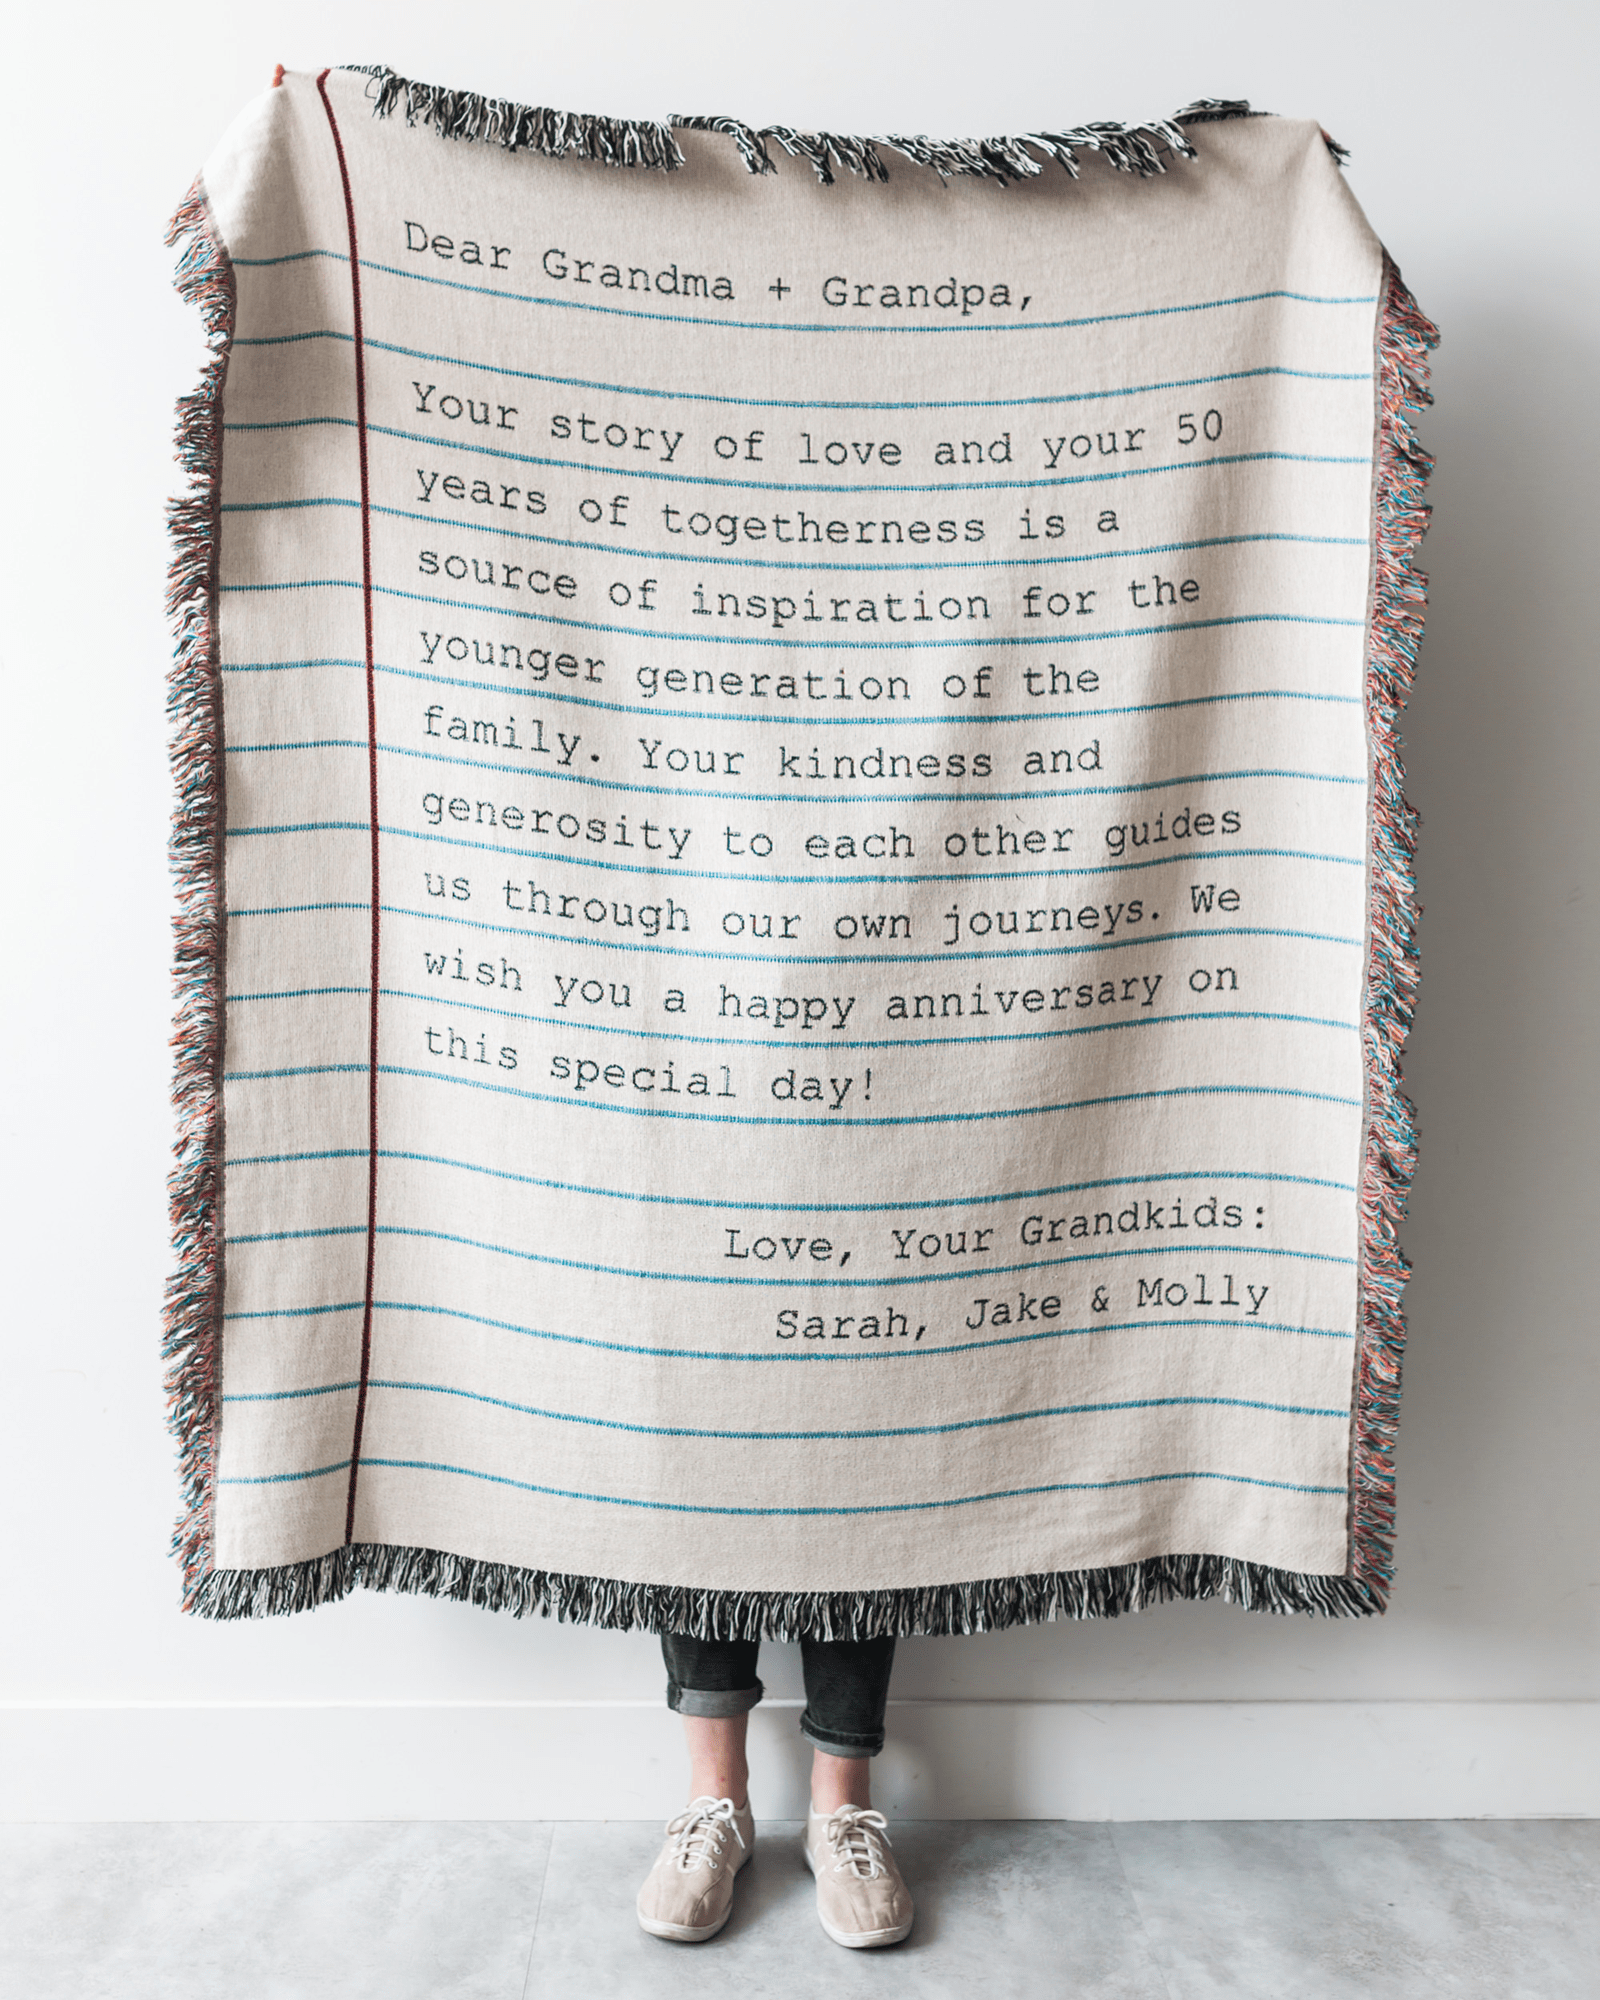 Dear Grandma + Grandpa,
Your story of love and your 50
years of togetherness is a
source of inspiration for the
younger generation of the
family. Your kindness and
generosity to each other guides
us through our own journeys. We
wish you a happy anniversary on
this special day!
Love, Your Grandkids:
Sarah, Jake & Molly